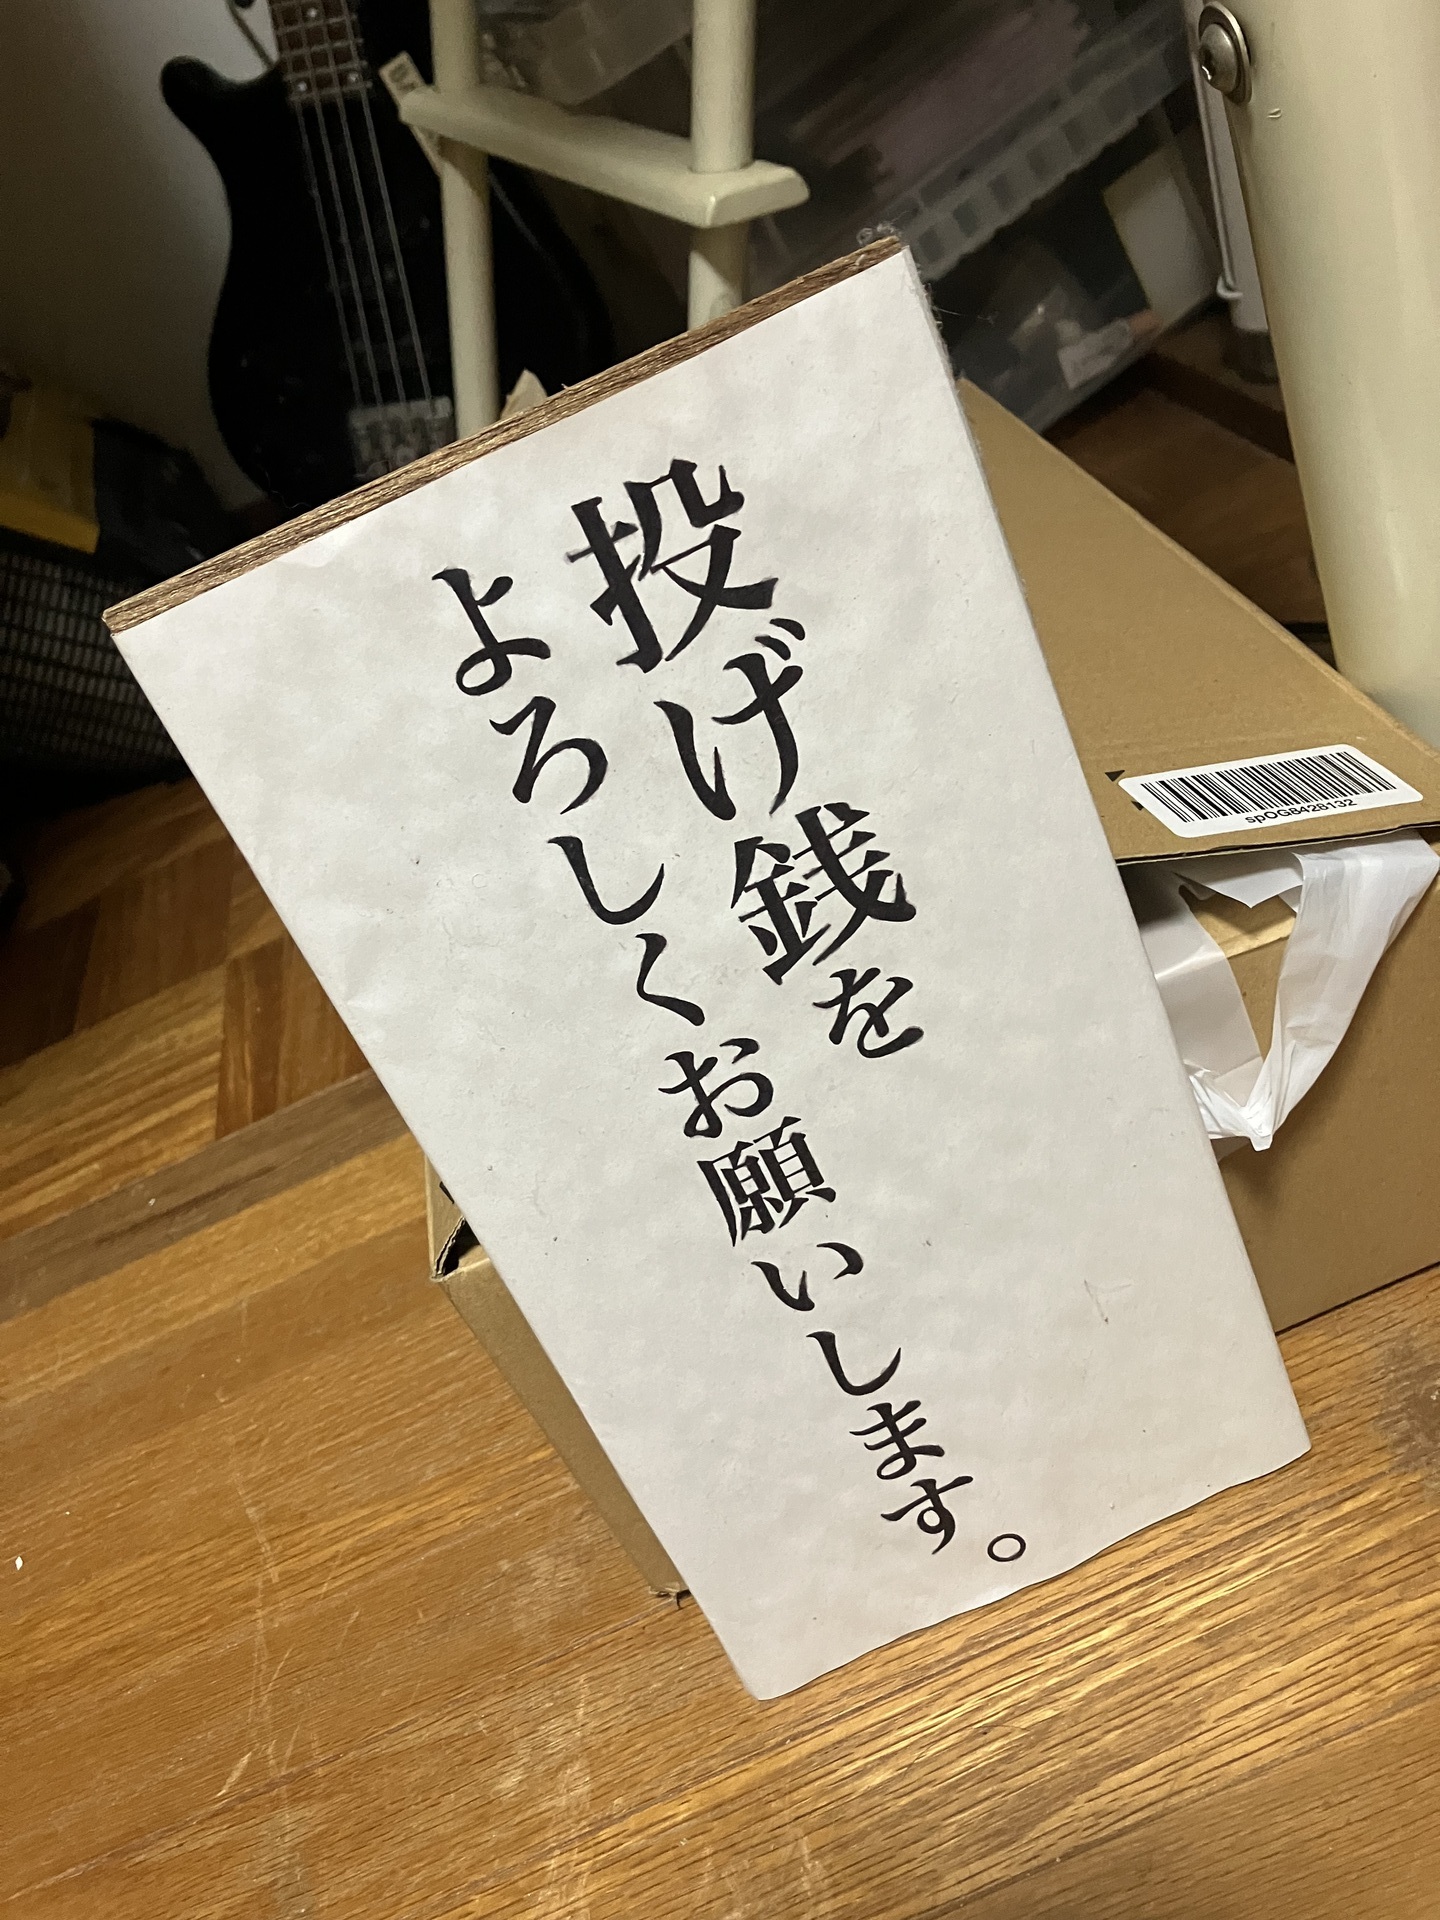 投げ銭を
よろしくお願いします。
spOG8428132